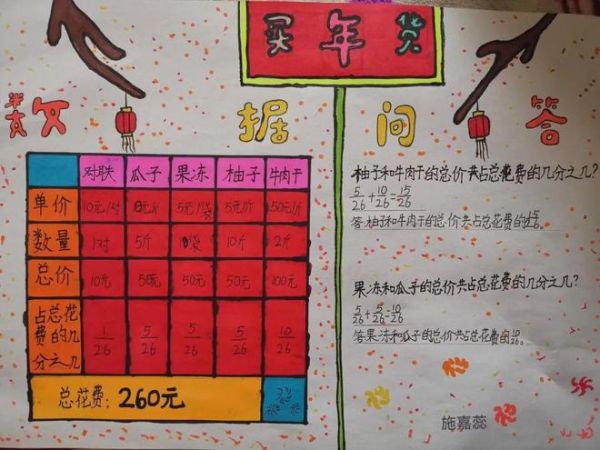 买年货
数据问答
对联 瓜子 果冻 柚子 牛肉干
单价 10元/对 10元/斤 5元/袋 5元/斤 50元/斤
数量 1对 5斤 10袋 10斤 2斤
总价 10元 50元 50元 50元 100元
占总花
费的几
分之几 1/26 5/26 5/26 5/26 10/26
总花费: 260元
柚子和牛肉干的总价共占总花费的几分之几?
5/26+10/26=15/26
答:柚子和牛肉干的总价共占总花费的15/26。
果冻和瓜子的总价共占总花费的几分之几?
5/26+5/26=10/26
答果冻和瓜子的总价共占总花费的10/26。
施嘉蕊